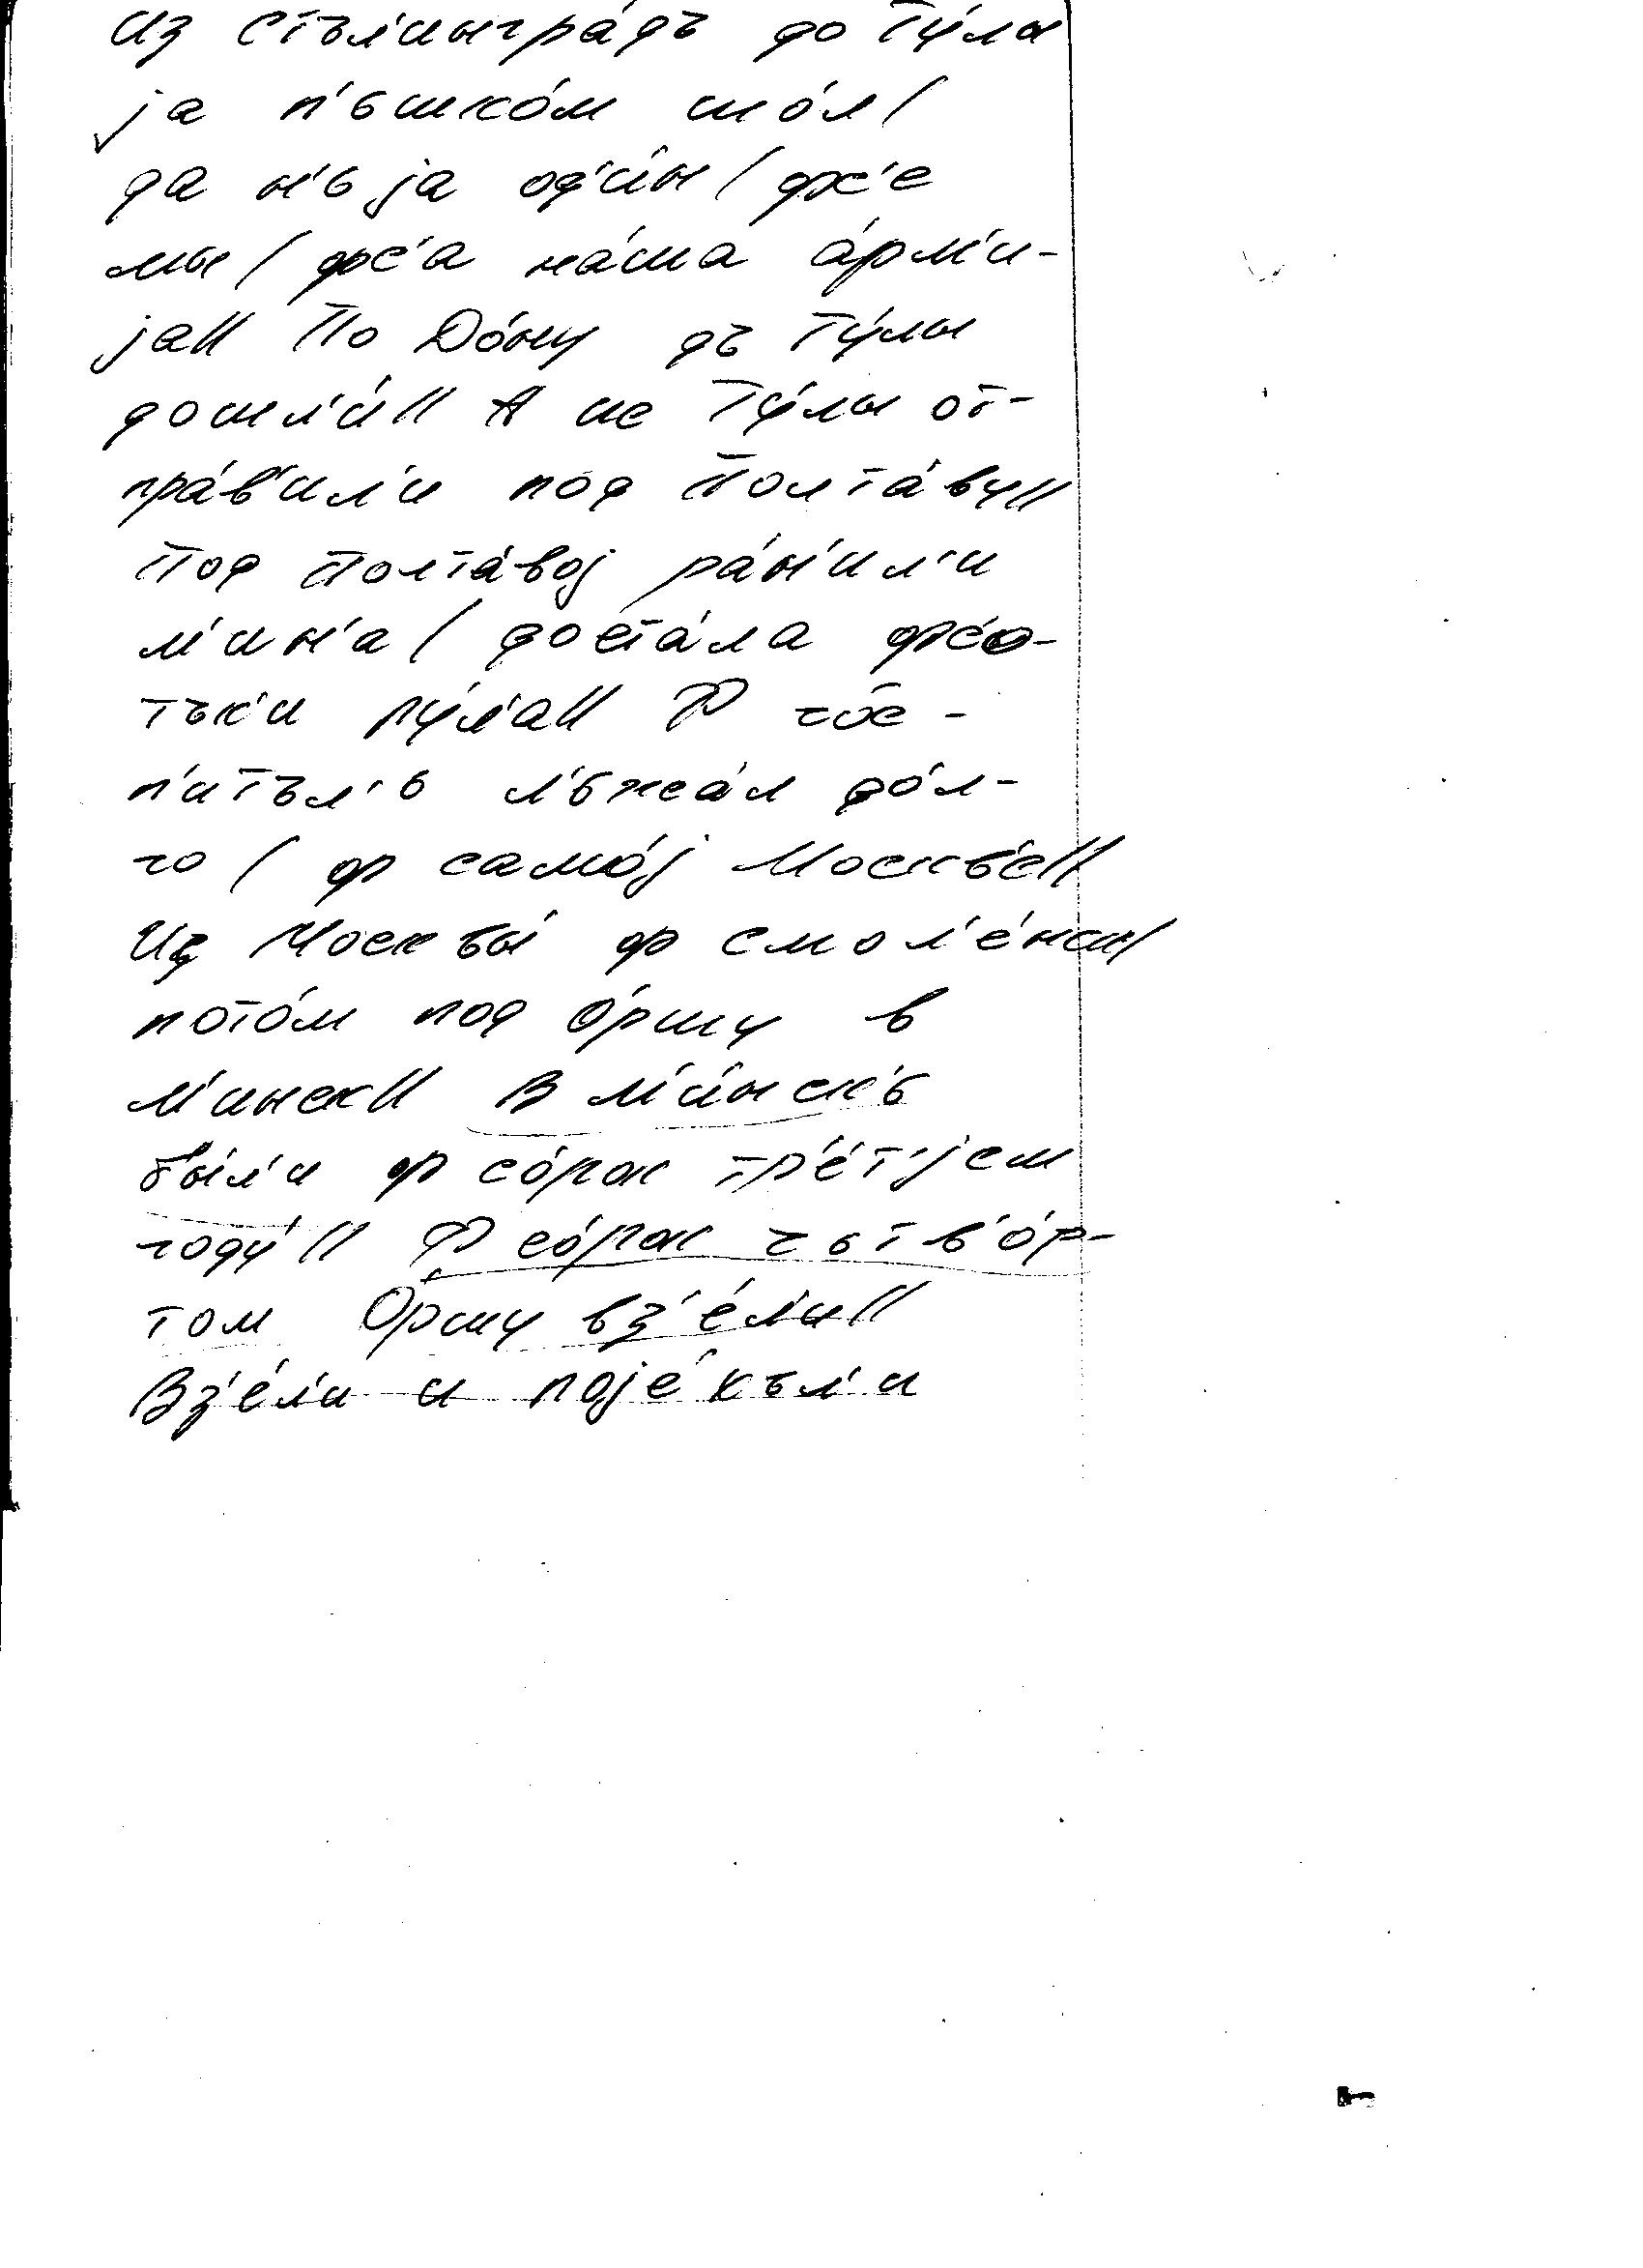 из стъл'ингра́дъ до Ту́лы
jа п'ьшко́м шо́л/
да н'ь jа од'и́н/ фс'е
мы/ фс'а на́ша а́рм'и-
jа// По До́ну дъ Ту́лы
дошл'и́// А ис Ту́лы от-
пра́в'ил'и под Полта́ву//
Под Полта́воj ра́н'ил'и
м'ин'а/ доста́ла фсо-
тък'и пу́л'а// Ф го́с-
п'итъл'ь л'ьжа́л до́л-
го/ ф само́j Москв'е́//
Из Москвы́ ф Смол'е́нск//
пото́м под О́ршу в
М'инск// В М'и́нск'ь
бы́л'и ф со́рок тр'е́т'jем
году́// Ф со́рок чьтв'о́р-
том Оршу вз'е́л'и//
Вз'е́л'и и поjе́хъл'и